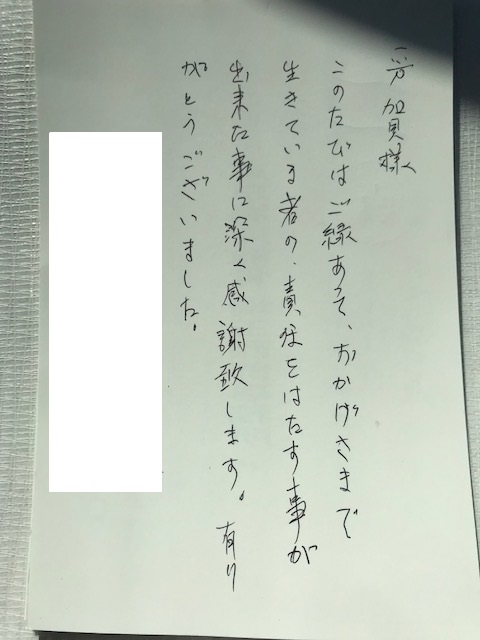 賀様
このたびはご縁あって、おかげさまで
生きている者の、責任をはたす事が
出来た事に深く感謝致します。有り
がとうございました。